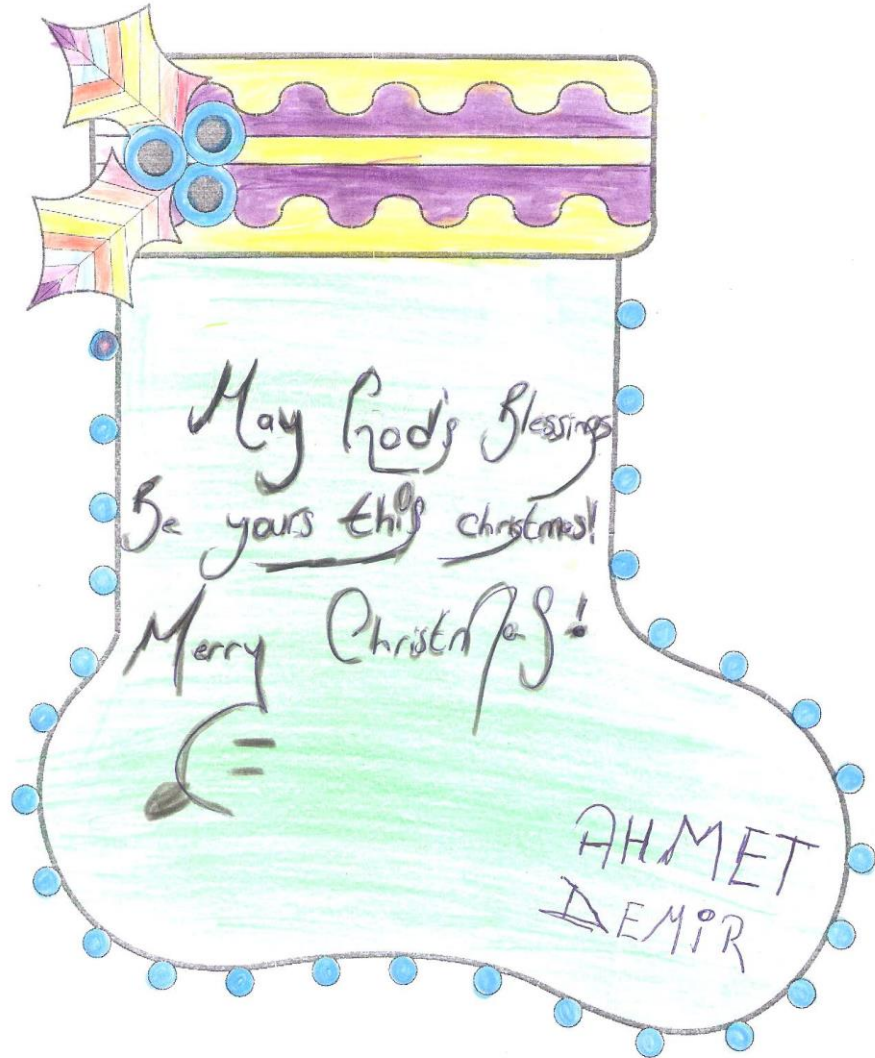 May God's Blessings
Be yours this christmas!
Merry Christmas!
AHMET
DEMiR